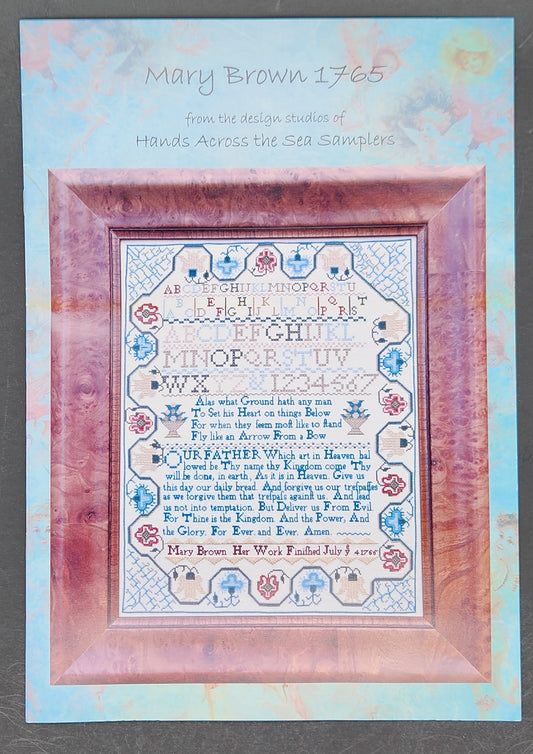 Mary Brown 1765
from the design studios of
Hands Across the Sea Samplers
ABCDEFGHIJKLMNOPQRSTU
B E H K N Q T
A C D F G I J L M O P R S
ABCDEFGHIJKL
MNOPQRSTUV
WXYZ&1234567
Alas what Ground hath any man
To Set his Heart on things Below
For when they seem moſt like to ſtand
Fly like an Arrow From a Bow
OUR FATHER Which art in Heaven hal
lowed be Thy name thy Kingdom come Thy
will be done, in earth, As it is in Heaven. Give us
this day our daily bread. And forgive us our treſpaſſes
as we forgive them that treſpaſs againſt us. And lead
us not into temptation. But Deliver us From Evil.
For Thine is the Kingdom. And the Power, And
the Glory. For Ever and Ever. Amen.
Mary Brown Her Work Finiſhed July yᵉ 4 1765